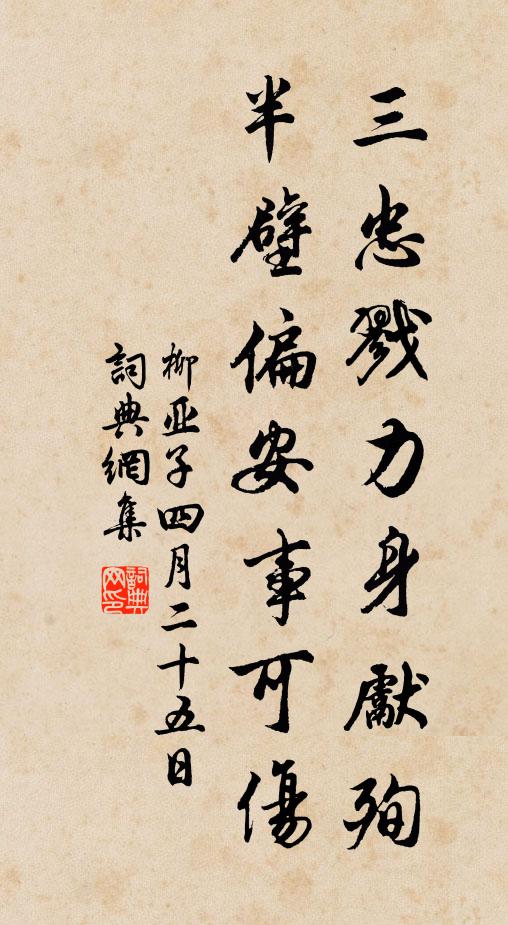 三忠戮力身獻殉
半壁偏安事可傷
柳亚子四月二十五日
詞典網集
詞典
网印